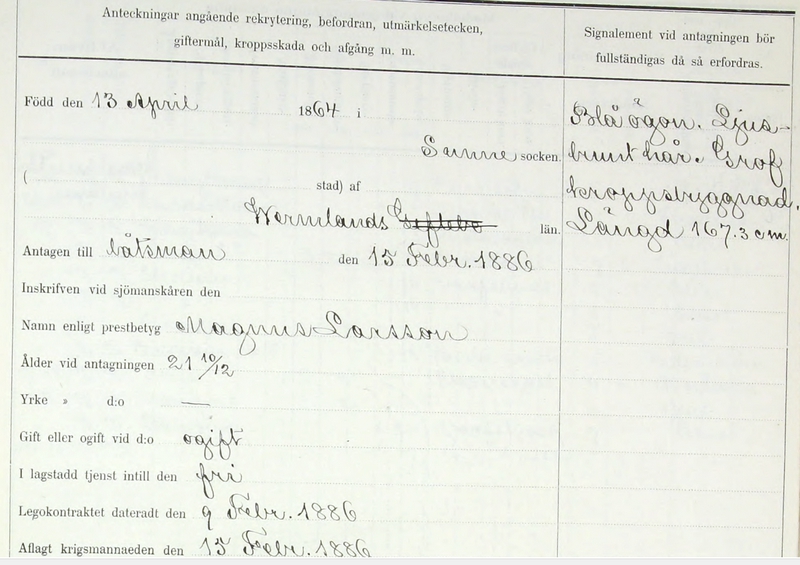 Anteckningar angående rekrytering, befordran, utmärkelsetecken,
giftermål, kroppsskada och afgång m. m.
Född den 13 April 1864 i
Sunne socken.
( stad) af
Wermlands Geflebo län.
Antagen till båtsman den 15 Febr. 1886
Inskrifven vid sjömanskåren den
Namn enligt prestbetyg Magnus Larsson
Ålder vid antagningen 21 10/12
Yrke » d:o —
Gift eller ogift vid d:o ogift
I lagstadd tjenst intill den fri
Legokontraktet dateradt den 9 Febr. 1886
Aflagt krigsmannaeden den 15 Febr. 1886
Signalement vid antagningen bör
fullständigas då så erfordras.
Blå ögon. Ljus-
brunt hår. Grof
kroppsbyggnad.
Längd 167.3 cm.